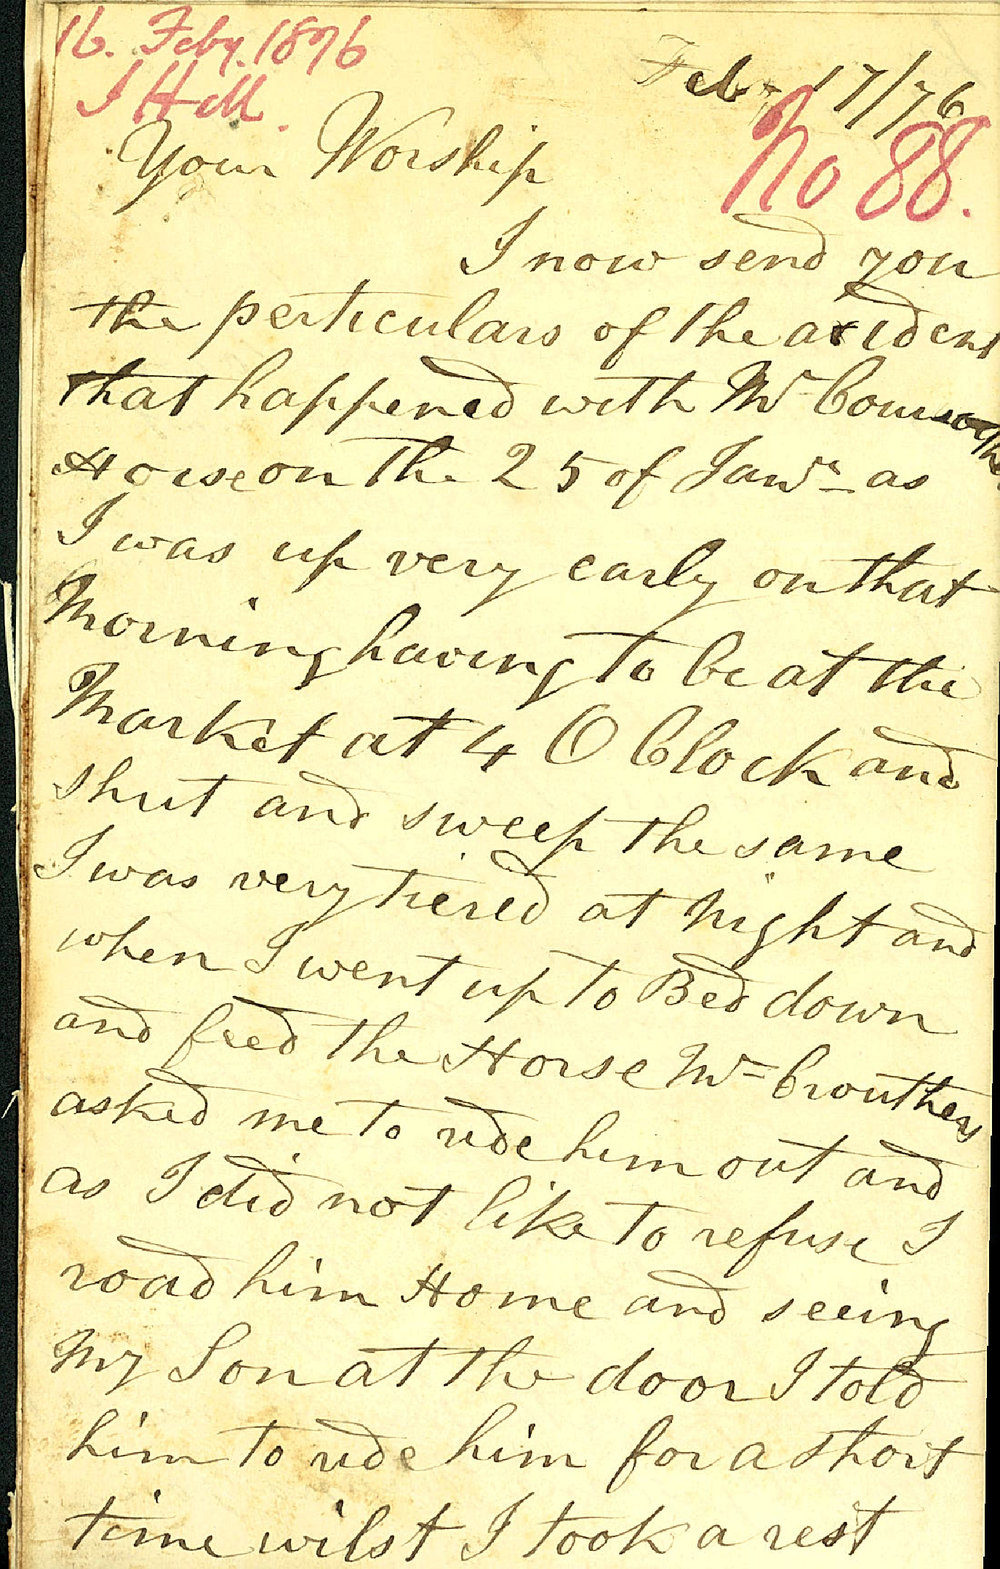 16. Feby. 1876
I Hill.
Feby 17/76
No 88.
Your Worship
I now send you
the perticulars of the axident
that happened with Mr
Horse on the 25 of Janr as
I was up very early on that
Morning having to be at the
Market at 4 O Clock and
shut and sweep the same
I was very tiered at Night and
when I went up to Bed down
and feed the Horse Mr Crouthers
asked me to ride him out and
as I did not like to refuse I
road him Home and seeing
My Son at the door I told
him to ride him for a short
time wilst I took a rest